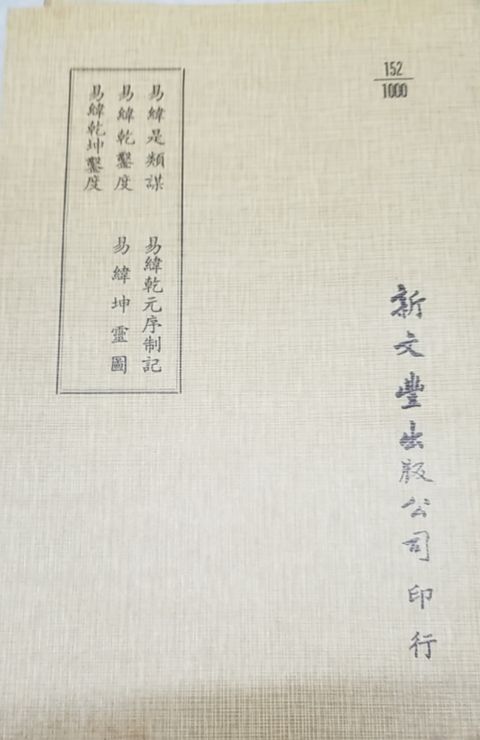 152
1000
新文豐出版公司印行
易緯是類謀 易緯乾元序制記
易緯乾鑿度 易緯坤靈圖
易緯乾坤鑿度